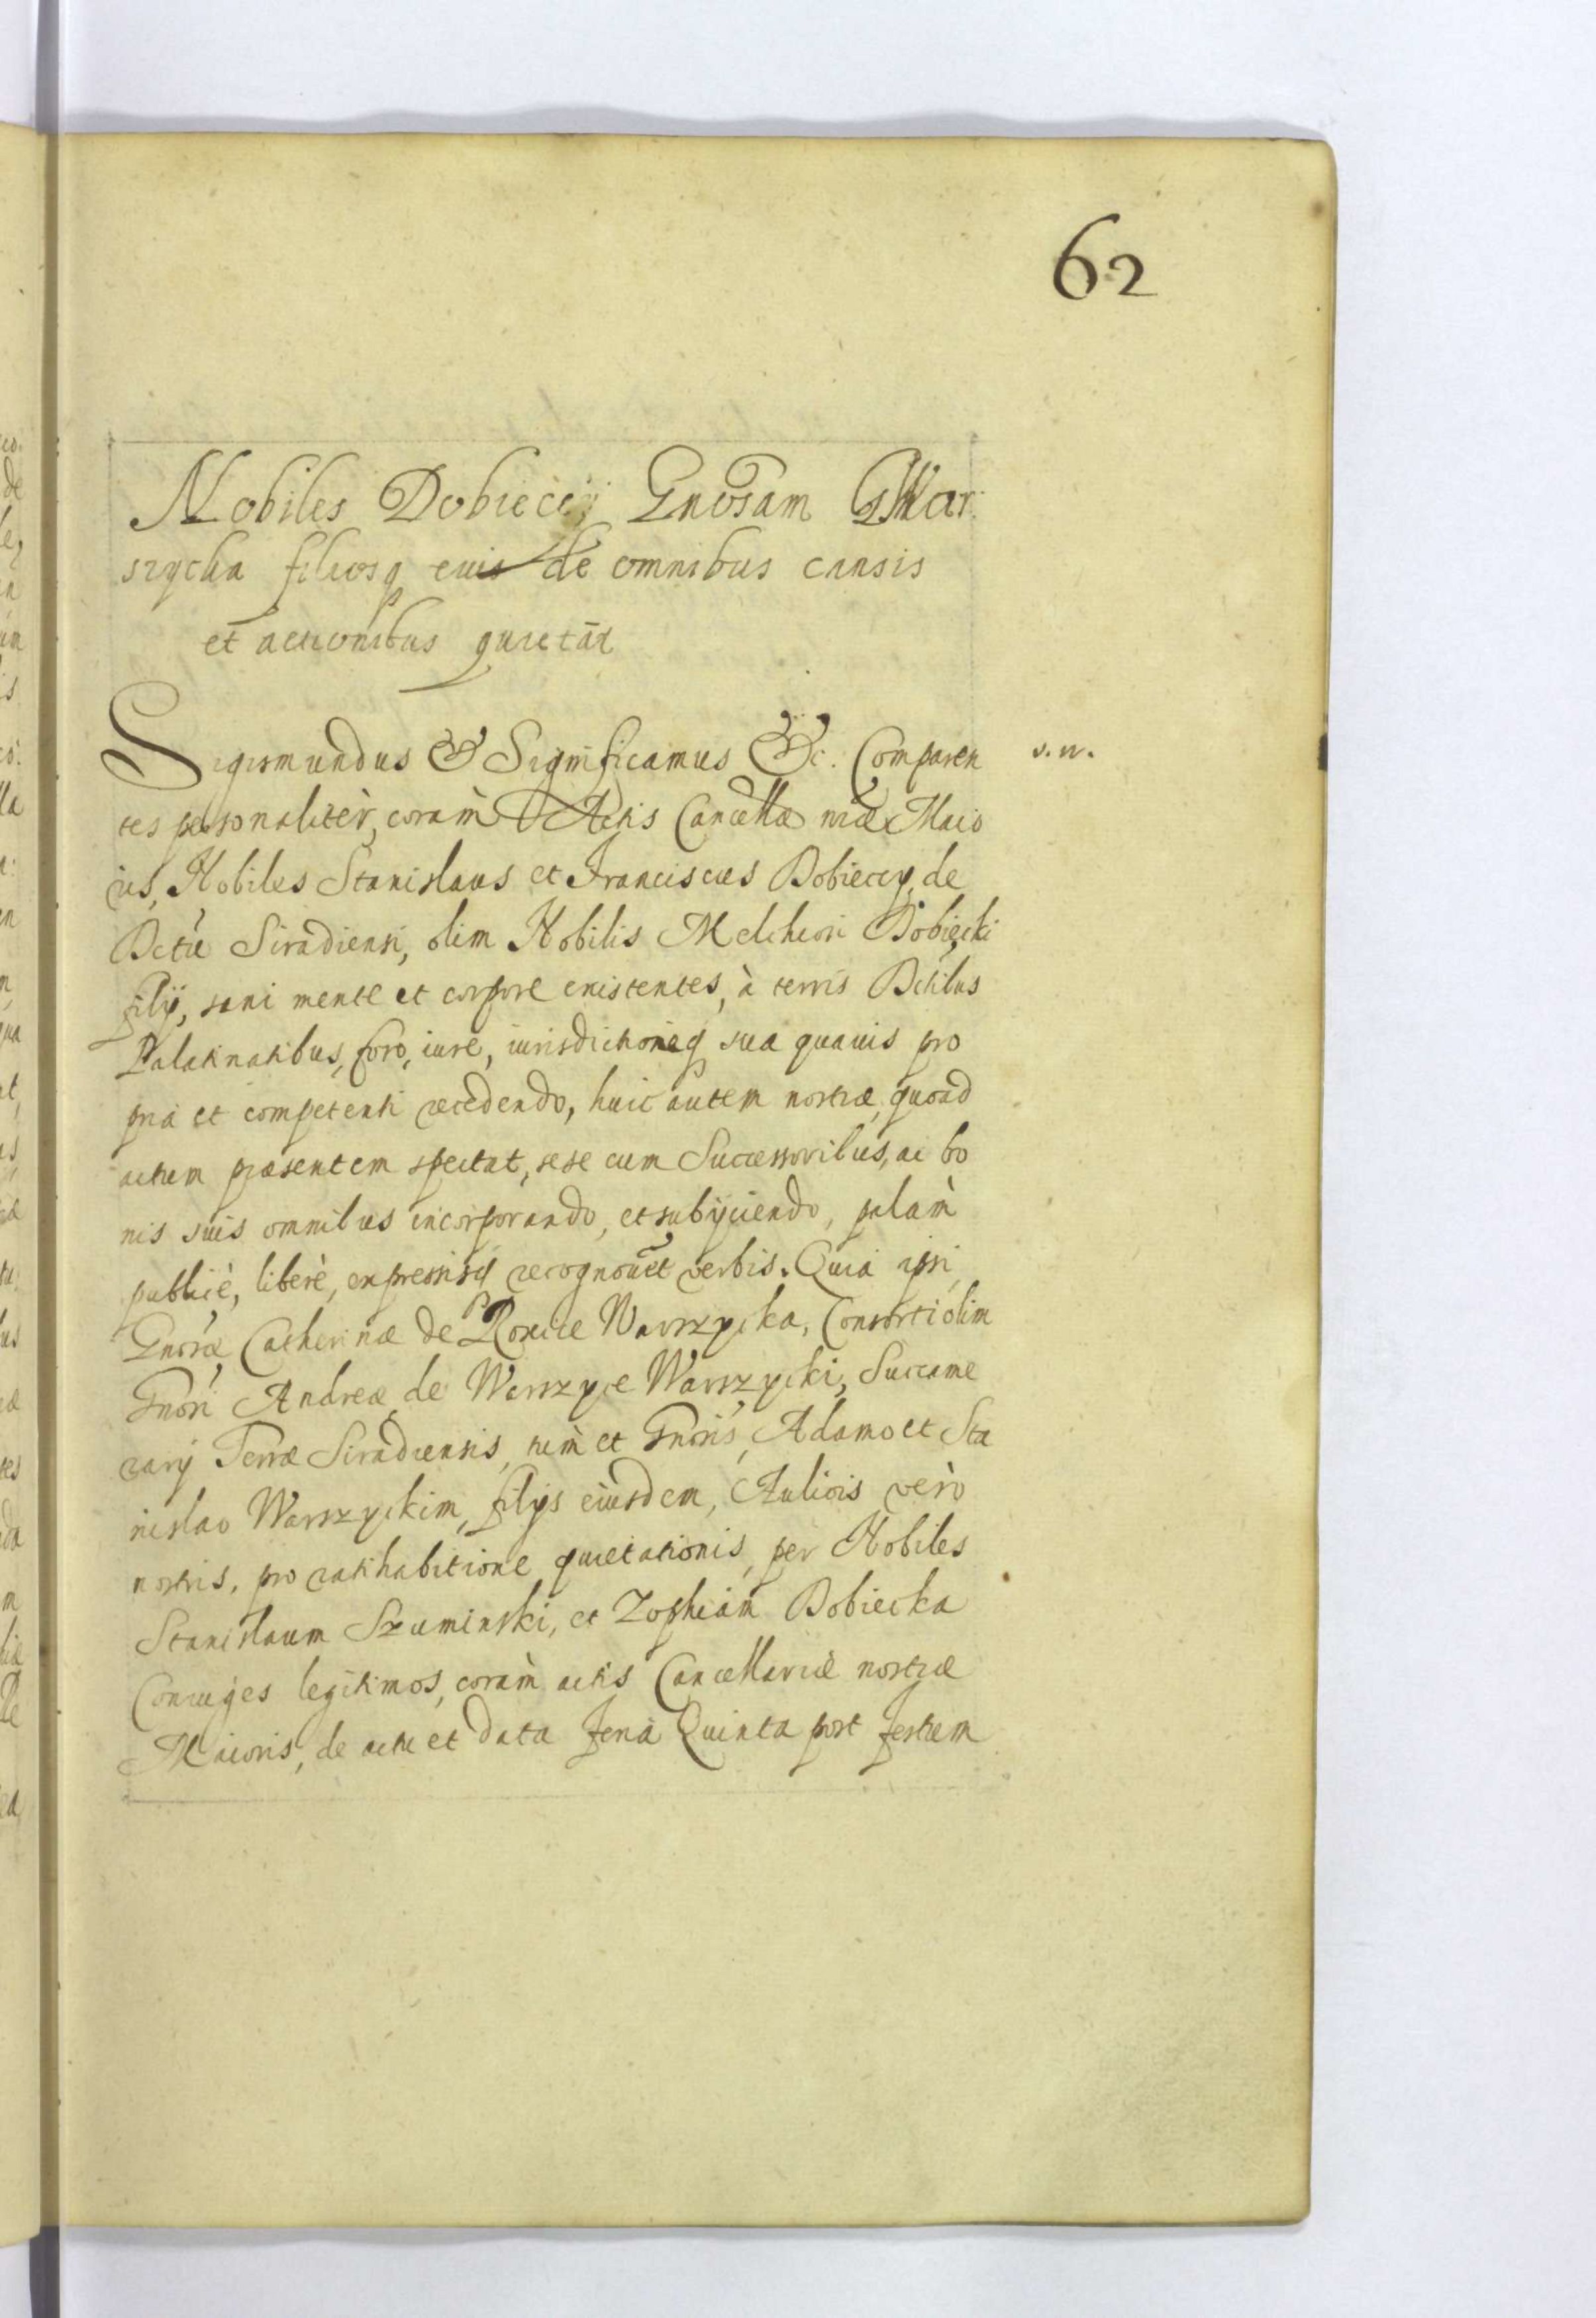 62
Nobiles Dobieccÿ Gnosam War
szycka filiosq eius de omnibus causis
et actionibus quietāt
Sigismundus & Significamus &c. Comparen
s. n.
tes personalitèr, coràm Actis Cancellæ nræ Maio
ris, Nobiles Stanislaus et Franciscus Dobieccy, de
Dctũ Siradiensi, olim Nobilis Melchiori Dobięcki
filÿ, sani mente et corpore existentes, à terris Dctibus
Palatinatibus, foro, iure, iurisdictioneq sua quauis pro
pria et competenti recedendo, huic autem nostræ, quoad
actum præsentem spectat, sese cum Successoribus, ac bo
nis suis omnibus incorporando, et subijciendo, palàm
publicè, liberè, expressisq recognouēt verbis. Quia ipsi
Gnosæ Catherinæ de Warszycka, Consorti olim
Gnosi Andreæ de Warszyce Warszycki, Succame
rarij Terræ Siradiensis, tùm et Gnosis, Adamo et Sta
nislao Warszyckim, filÿs eiusdem, Aulicis verò
nostris, pro ratihabitione quietationis, per Nobiles
Stanislaum Szuminski, et Zophiam Dobiecka
Coniuges legitimos, coràm actis Cancellariæ nostræ
Maioris, de actu et data Feria Quinta post festum